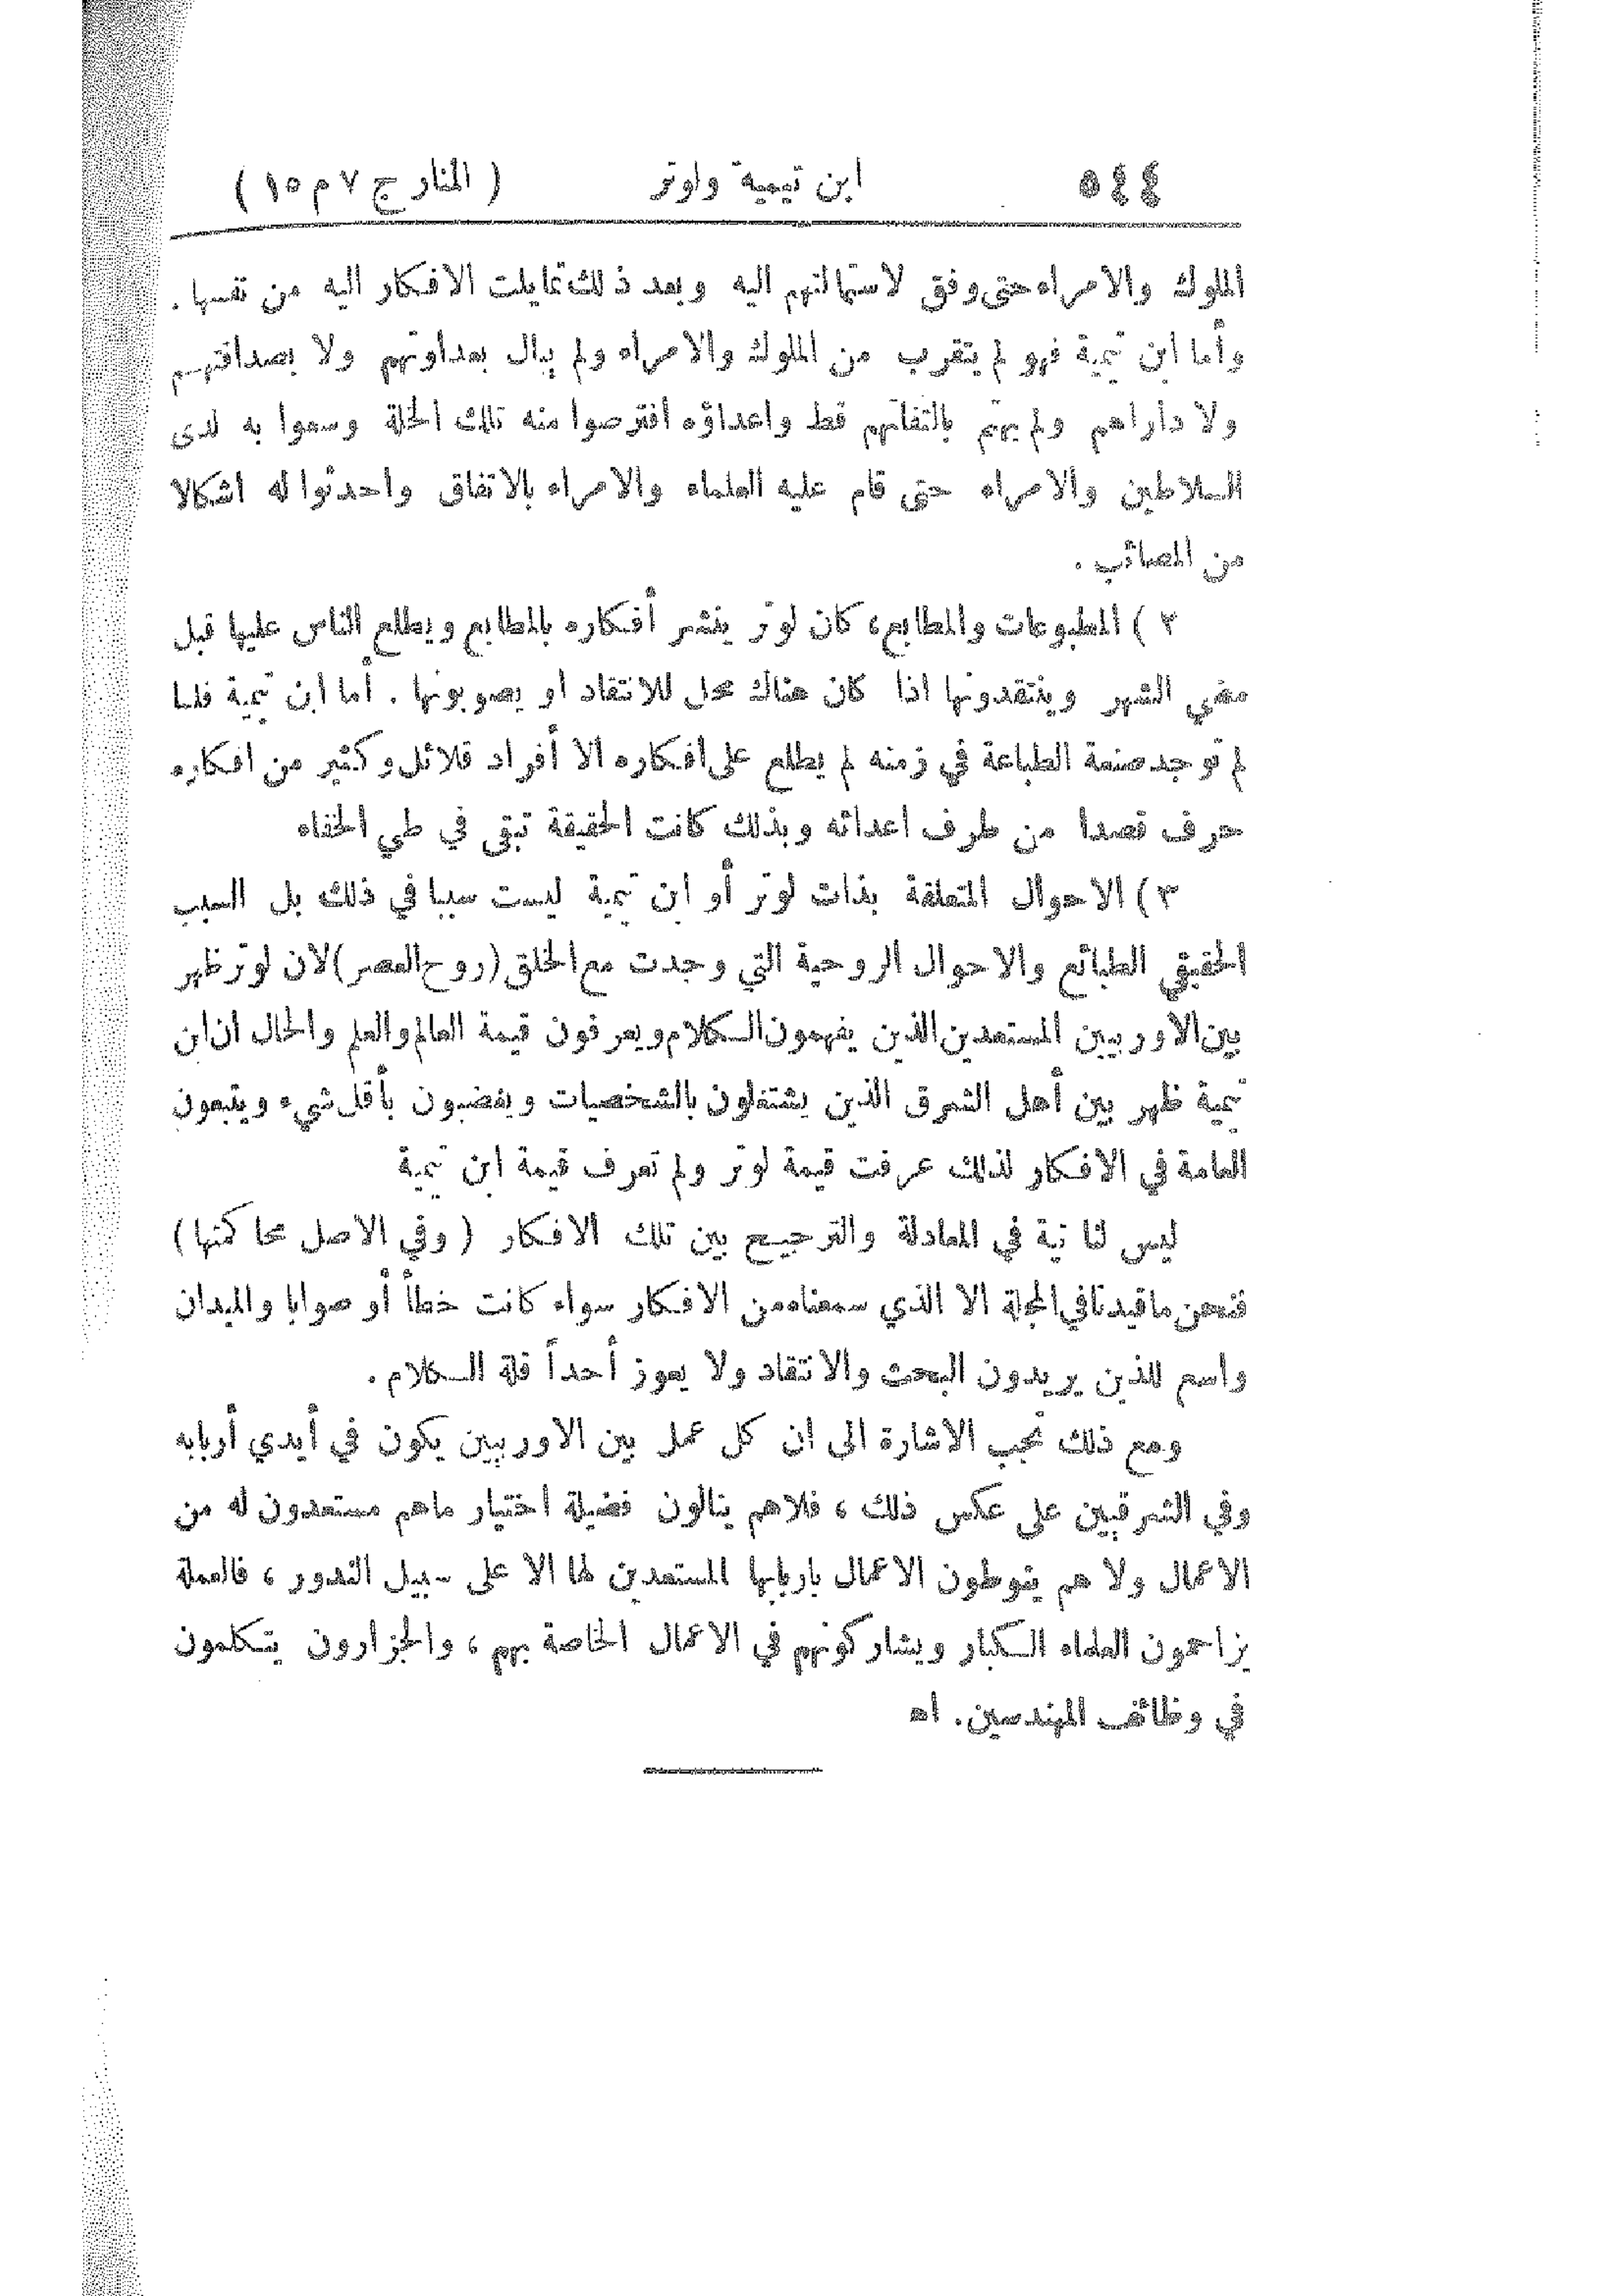 ٥٤٤ ابن تيمية ولوتر ( المنار ج ٧ م ١٥ )
الملوك والامراء حتى وفق لاستمالتهم اليه وبعد ذلك تمايلت الافكار اليه من نفسها .
وأما ابن تيمية فهو لم يتقرب من الملوك والامراء ولم يبال بعداوتهم ولا بصداقتهم
ولا داراهم ولم يهتم بالتفاتهم قط واعداؤه افترصوا منه تلك الخلة وسعوا به لدى
السلاطين والامراء حتى قام عليه العلماء والامراء بالاتفاق واحدثوا له اشكالا
من المصائب .
٢ ) المطبوعات والمطابع، كان لوتر ينشر أفكاره بالمطابع ويطلع الناس عليها قبل
مضي الشهر وينتقدونها اذا كان هناك محل للانتقاد او يصوبونها . أما ابن تيمية فلما
لم توجد صنعة الطباعة في زمنه لم يطلع على افكاره الا أفراد قلائل وكثير من افكاره
حرف قصدا من طرف اعدائه وبذلك كانت الحقيقة تبقى في طي الخفاء
٣ ) الاحوال المتعلقة بذات لوتر أو ابن تيمية ليست سببا في ذلك بل السبب
الحقيقي الطبائع والاحوال الروحية التي وجدت مع الخلق (روح العصر) لان لوتر ظهر
بين الاوربيين المستعدين الذين يفهمون الكلام ويعرفون قيمة العالم والعلم والحال ان ابن
تيمية ظهر بين أهل الشرق الذين يشتغلون بالشخصيات ويغضبون بأقل شيء ويتبعون
العامة في الافكار لذلك عرفت قيمة لوتر ولم تعرف قيمة ابن تيمية
ليس لنا نية في المعادلة والترجيح بين تلك الافكار ( وفي الاصل محاكمتها )
فنحن ماقيدنا في المجلة الا الذي سمعناه من الافكار سواء كانت خطأ أو صوابا والميدان
واسع للذين يريدون البحث والانتقاد ولا يعوز أحداً قلة الكلام .
ومع ذلك تجب الاشارة الى ان كل عمل بين الاوربيين يكون في أيدي أربابه
وفي الشرقيين على عكس ذلك ، فلاهم ينالون فضيلة اختيار ماهم مستعدون له من
الاعمال ولا هم ينوطون الاعمال باربابها المستعدين لها الا على سبيل الندور ، فالعملة
يزاحمون العلماء الكبار ويشاركونهم في الاعمال الخاصة بهم ، والجزارون يتكلمون
في وظائف المهندسين. اه